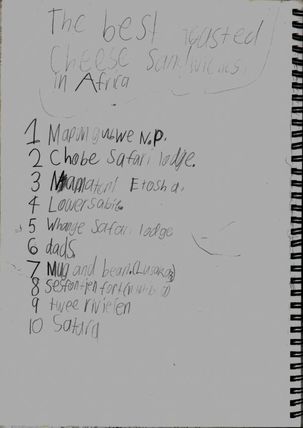 The best roasted
Cheese Sandwiches
in Africa
1 Mapungubwe N.P.
2 Chobe Safari lodge.
3 Etosha.
4 Lowersabie
5 Whange Safari lodge
6 dads
7 Mug and bean (Lusaka)
8 Sesfontien fort
9 twee rivieren
10 Satara